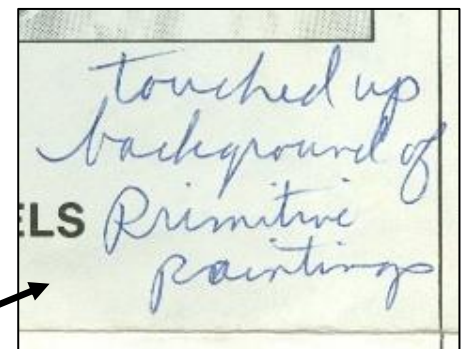 touched up
background of
ELS Primitive
paintings